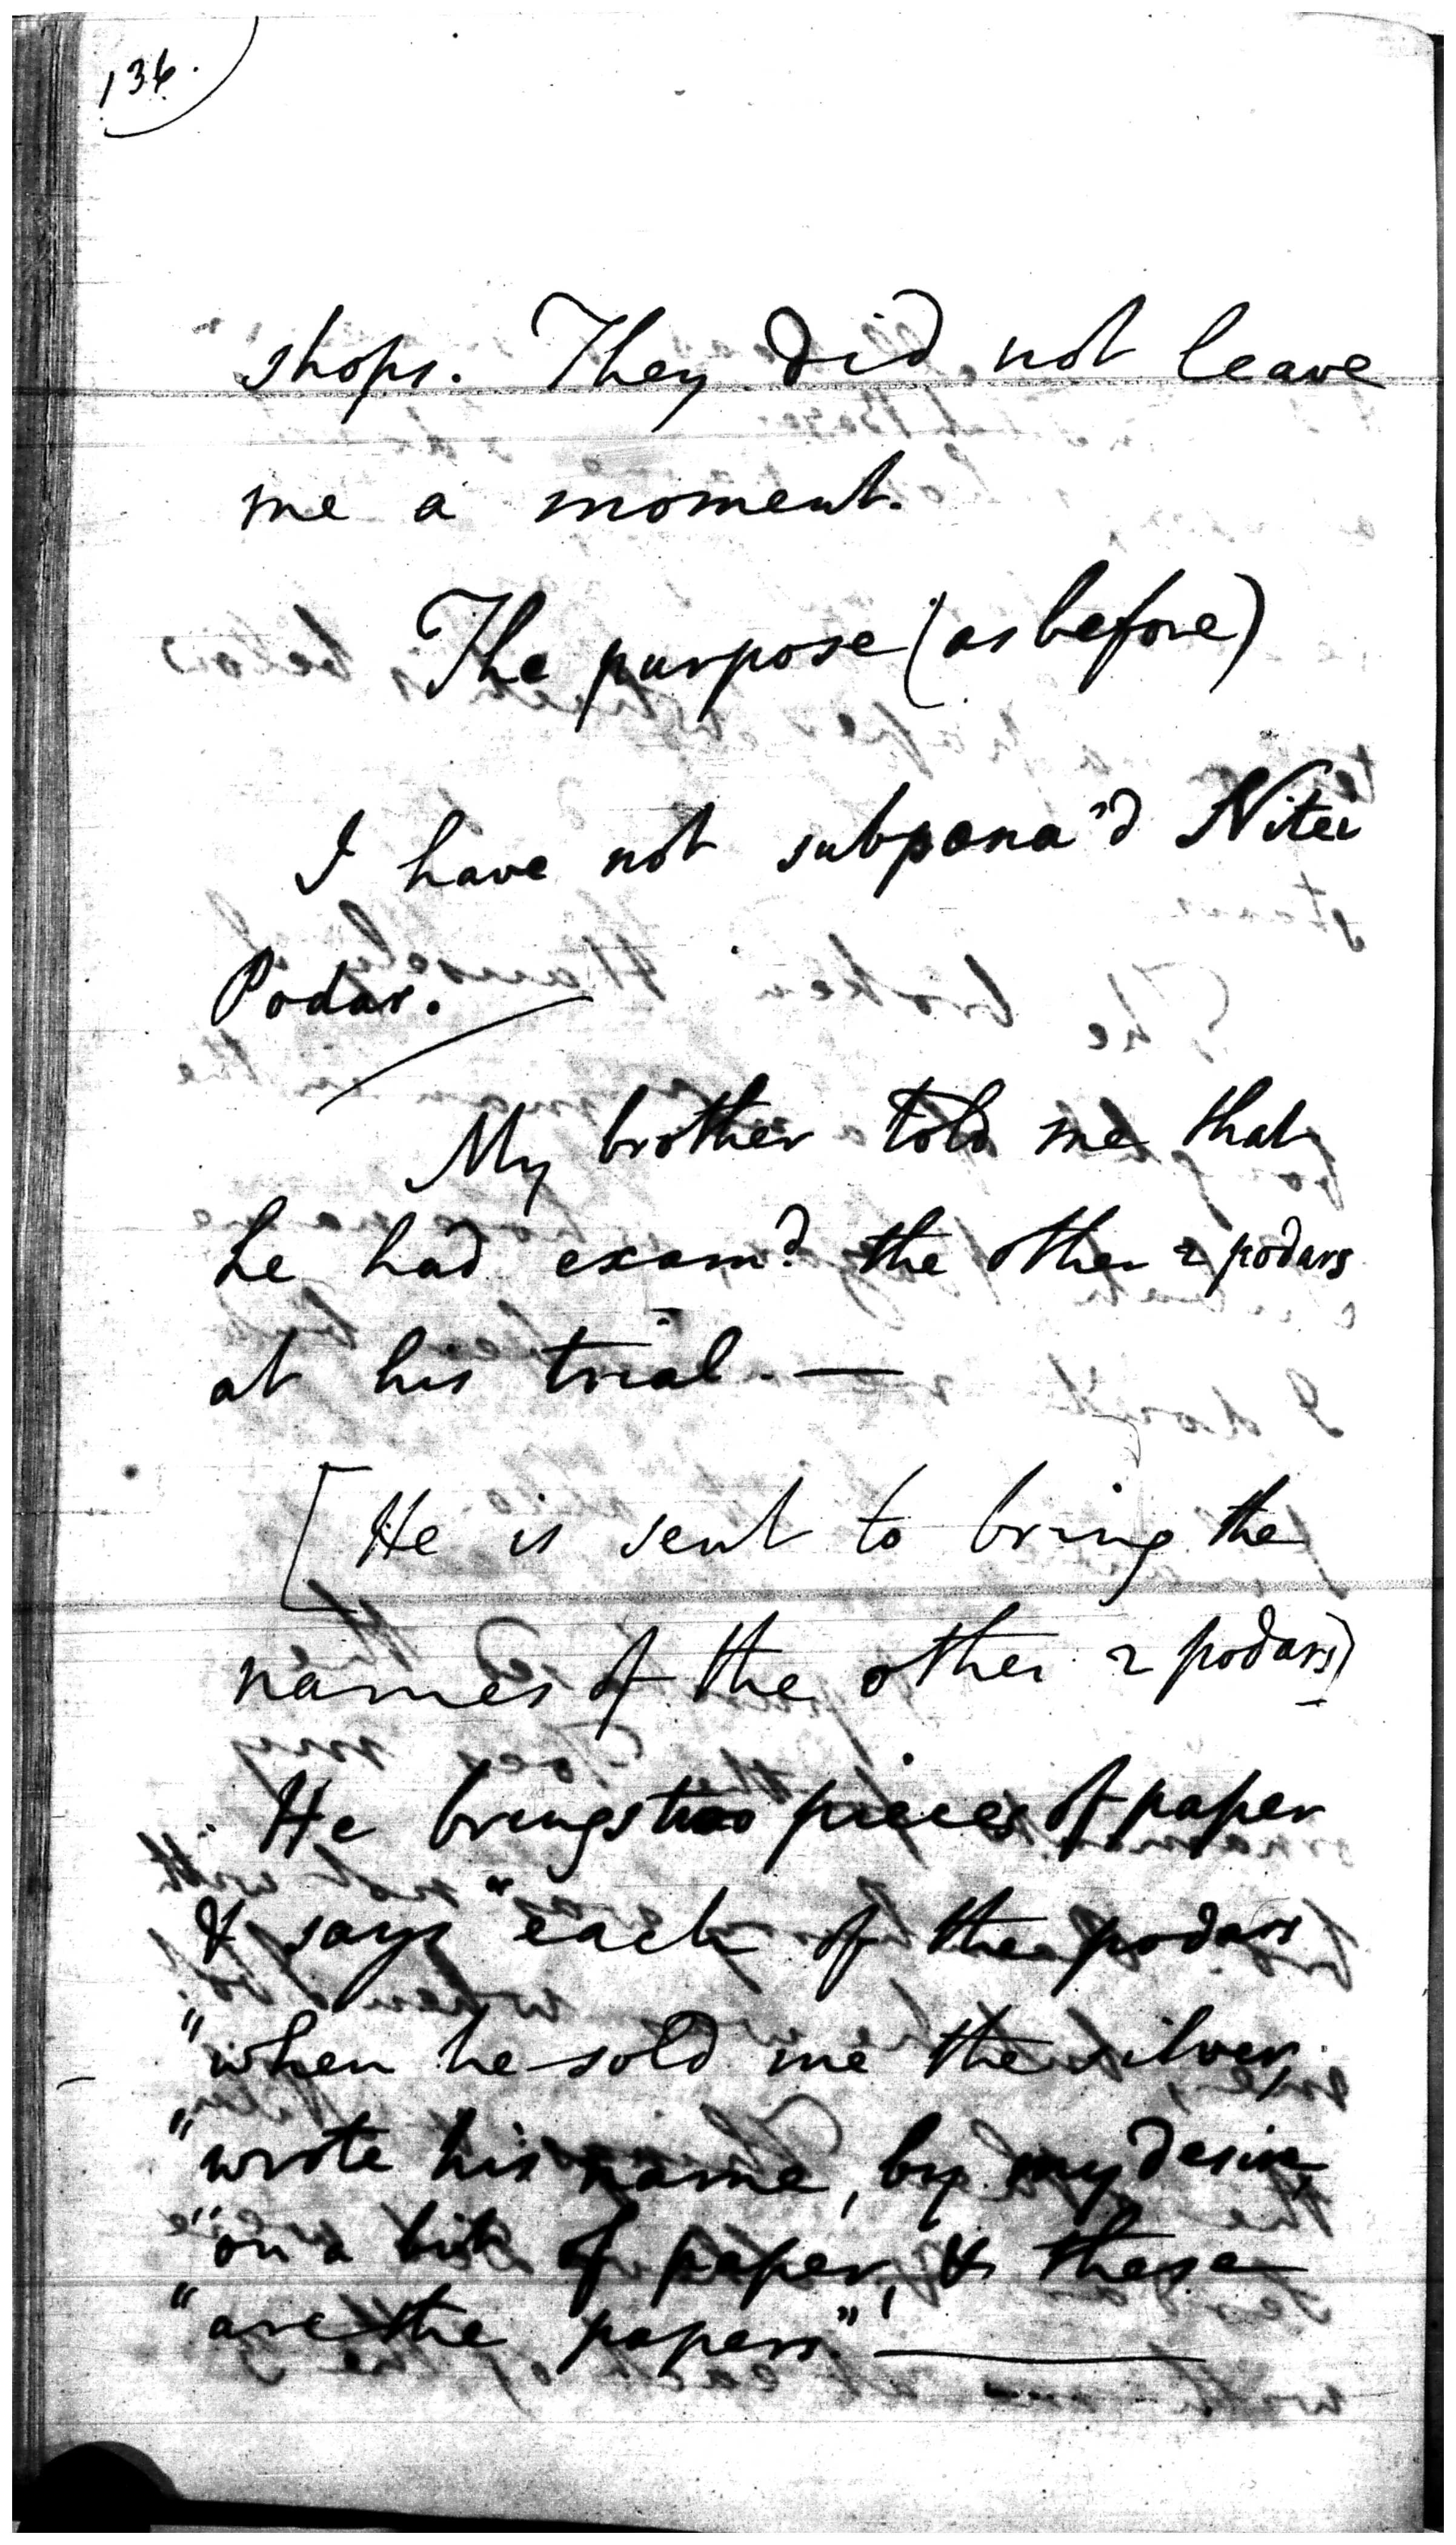 136.
shops. They did not leave
me a moment.
The purpose (as before)
I have not subpœna'd Nitei
Podar.
My brother told me that
he had examd. the other 2 podars
at his trial. —
[He is sent to bring the
names of the other 2 podars]
He brings two pieces of paper
& says "each of the podars
"when he sold me the silver
"wrote his name, by my desire,
"on a bit of paper, & these
"are the papers." —